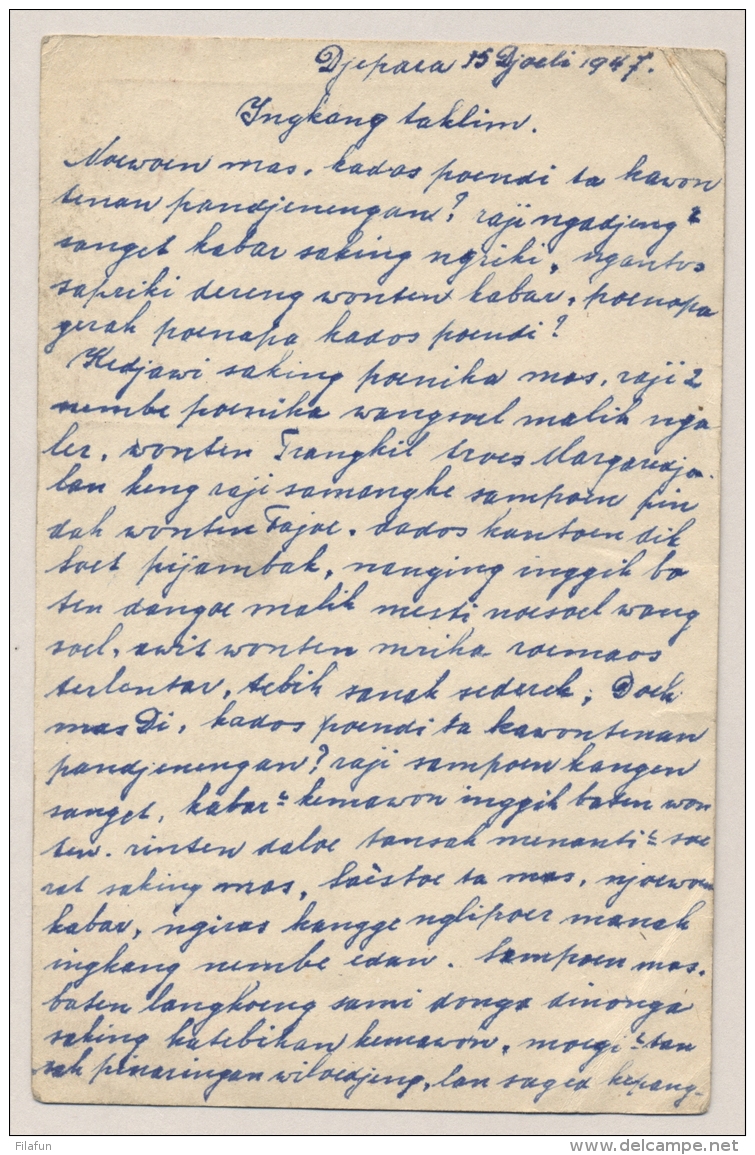 Djepara 15 Djoeli 1947.
Ingkang taklim.
Noewoen mas, kados poendi ta kawon
tenan pandjenengan? raji ngadjeng²
sanget kabar saking ngriki, ngantos
sapriki dereng wonten kabar, poenapa
gerah poenapa kados poendi?
Kedjawi saking poenika mas, raji 2
nembe poenika wangsoel malih nga
ler, wonten Trangkil troes Margaredjo
lan keng raji samangke sampoen pin
dah wonten Tajoe. dados kantoen dik
Soet pijambak, nanging inggih bo
ten dangoe malih mesti noesoel wang
soel, awit wonten mrika roemaos
terlantar, tebih sanak sederek, Doeh
mas Di, kados poendi ta kawontenan
pandjenengan? raji sampoen kangen
sanget, kabar² kemawon inggih boten won
ten. rinten daloe tansah menanti² soe
rat saking mas, Saèstoe ta mas, njoewoen
kabar, ngiras kangge nglipoer manah
ingkang nembe edan. Sampoen mas.
boten langkoeng sami donga dinonga
saking katebihan kemawon, moegi² tan
sah pinaringan wiloedjeng, lan saged kepang-
Filafun
www.delcampe.net